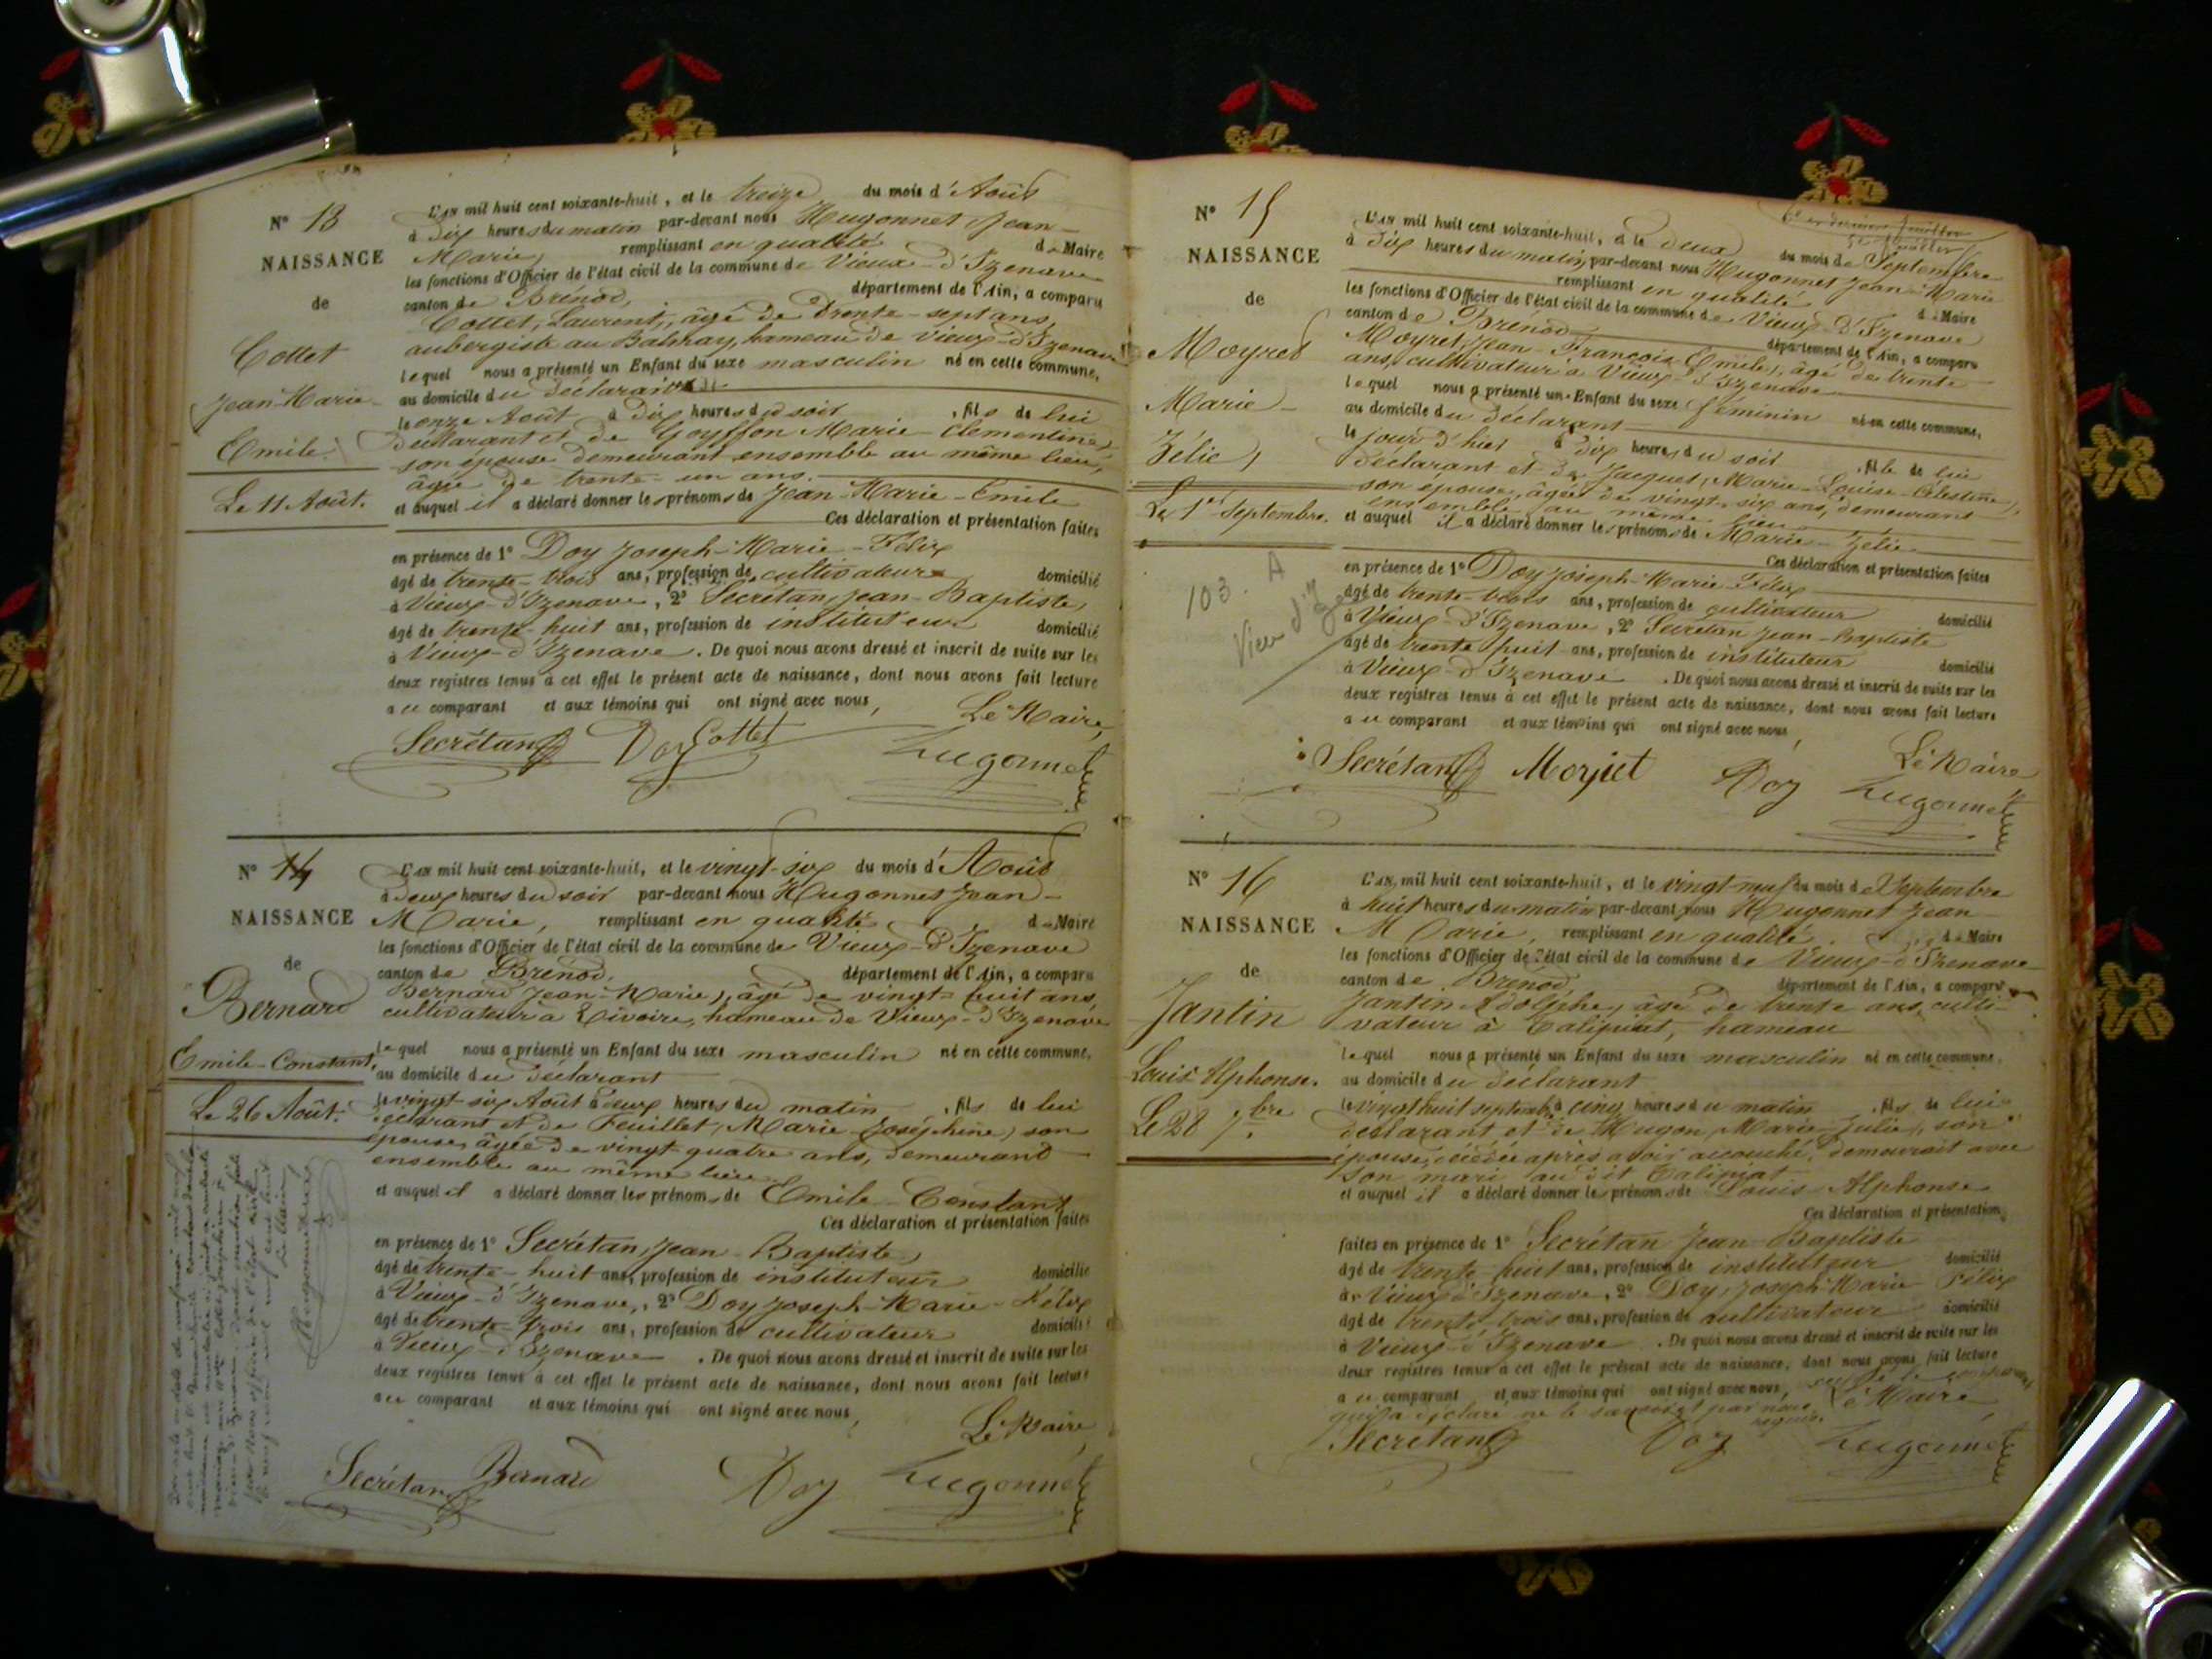 N° 13
NAISSANCE
de
Cottet
Jean-Marie-
Emile.
Le 11 Août.
L'AN mil huit cent soixante-huit, et le treize du mois d'Août
à dix heures du matin par-devant nous Hugonnet Jean-
Marie, remplissant en qualité de Maire
les fonctions d'Officier de l'état civil de la commune de Vieux-d'Izenave
canton de Brénod, département de l'Ain, a comparu
Cottet, Laurent, âgé de trente-sept ans,
aubergiste au Balthay, hameau de Vieux-d'Izenave
lequel nous a présenté un Enfant du sexe masculin né en cette commune,
au domicile du déclarant
le onze Août à dix heures du soir, fils de lui
déclarant et de Goyffon Marie-Clementine,
son épouse demeurant ensemble au même lieu,
âgée de trente-un ans.
et auquel il a déclaré donner les prénoms de Jean-Marie-Emile
Ces déclaration et présentation faites
en présence de 1° Doy Joseph-Marie-Félix
âgé de trente-trois ans, profession de cultivateur domicilié
à Vieux-d'Izenave, 2° Secrétan, Jean-Baptiste,
âgé de trente-huit ans, profession de instituteur domicilié
à Vieux-d'Izenave. De quoi nous avons dressé et inscrit de suite sur les
deux registres tenus à cet effet le présent acte de naissance, dont nous avons fait lecture
au comparant et aux témoins qui ont signé avec nous,
Le Maire,
Secrétan Doy Cottet Hugonnet
N° 14
NAISSANCE
de
Bernard
Emile-Constant.
Le 26 Août.
L'AN mil huit cent soixante-huit, et le vingt-six du mois d'Août
à deux heures du soir par-devant nous Hugonnet Jean-
Marie, remplissant en qualité de Maire
les fonctions d'Officier de l'état civil de la commune de Vieux-d'Izenave
canton de Brénod, département de l'Ain, a comparu
Bernard Jean-Marie, âgé de vingt-huit ans,
cultivateur à Livoire, hameau de Vieux-d'Izenave
lequel nous a présenté un Enfant du sexe masculin né en cette commune,
au domicile du déclarant
le vingt-six Août à deux heures du matin, fils de lui
déclarant et de Feuillet, Marie-Joséphine, son
épouse, âgée de vingt-quatre ans, demeurant
ensemble au même lieu
et auquel il a déclaré donner les prénoms de Emile-Constant
Ces déclaration et présentation faites
en présence de 1° Secrétan, Jean-Baptiste,
âgé de trente-huit ans, profession de instituteur domicilié
à Vieux-d'Izenave, 2° Doy Joseph-Marie-Félix
âgé de trente-trois ans, profession de cultivateur domicilié
à Vieux-d'Izenave. De quoi nous avons dressé et inscrit de suite sur les
deux registres tenus à cet effet le présent acte de naissance, dont nous avons fait lecture
au comparant et aux témoins qui ont signé avec nous,
Le Maire
Secrétan Bernard Doy Hugonnet
N° 15
NAISSANCE
de
Moyret
Marie-
Zélie,
Le 1er Septembre.
103. A
L'AN mil huit cent soixante-huit, et le deux du mois de Septembre
à dix heures du matin, par-devant nous Hugonnet Jean-Marie
remplissant en qualité de Maire
les fonctions d'Officier de l'état civil de la commune de Vieux-d'Izenave
canton de Brénod département de l'Ain, a comparu
Moyret, Jean-François-Emile, âgé de trente
ans, cultivateur à Vieux-d'Izenave
lequel nous a présenté un Enfant du sexe féminin né en cette commune,
au domicile du déclarant
le jour d'hier à dix heures du soir, fille de lui
déclarant et de Jacquet, Marie-Louise-Célestine,
son épouse, âgée de vingt-six ans, demeurant
ensemble au même lieu
et auquel il a déclaré donner les prénoms de Marie-Zélie
Ces déclaration et présentation faites
en présence de 1° Doy Joseph-Marie-Félix
âgé de trente-trois ans, profession de cultivateur domicilié
à Vieux-d'Izenave, 2° Secrétan Jean-Baptiste
âgé de trente huit ans, profession de instituteur domicilié
à Vieux-d'Izenave. De quoi nous avons dressé et inscrit de suite sur les
deux registres tenus à cet effet le présent acte de naissance, dont nous avons fait lecture
au comparant et aux témoins qui ont signé avec nous,
Le Maire
Secrétan Moyret Doy Hugonnet
N° 16
NAISSANCE
de
Jantin
Louis Alphonse.
Le 28 7bre
L'AN mil huit cent soixante-huit, et le vingt-neuf du mois de Septembre
à huit heures du matin par-devant nous Hugonnet Jean
Marie, remplissant en qualité de Maire
les fonctions d'Officier de l'état civil de la commune de Vieux-d'Izenave
canton de Brénod département de l'Ain, a comparu
Jantin Adolphe, âgé de trente ans, culti-
vateur à Talipiat, hameau
lequel nous a présenté un Enfant du sexe masculin né en cette commune,
au domicile du déclarant
le vingt huit septembre à cinq heures du matin, fils de lui
déclarant et de Hugon, Marie-Julie, son
épouse, décédée après avoir accouché, demeurait avec
son mari au dit Talipiat
et auquel il a déclaré donner les prénoms de Louis-Alphonse
Ces déclaration et présentation
faites en présence de 1° Secrétan Jean Baptiste
âgé de trente-huit ans, profession de instituteur domicilié
à Vieux d'Izenave, 2° Doy, Joseph-Marie-Félix
âgé de trente-trois ans, profession de cultivateur domicilié
à Vieux-d'Izenave. De quoi nous avons dressé et inscrit de suite sur les
deux registres tenus à cet effet le présent acte de naissance, dont nous avons fait lecture
au comparant et aux témoins qui ont signé avec nous,
qui a déclaré ne le savoir
Le Maire,
Secrétan Doy Hugonnet